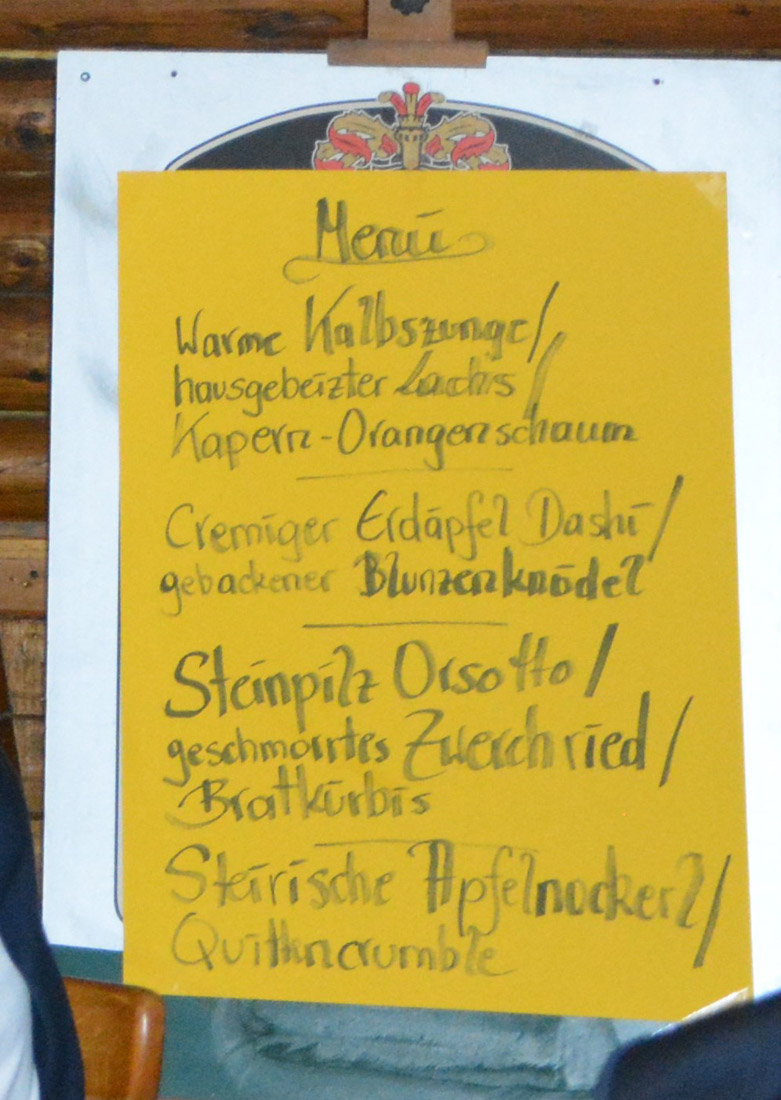 Menü
Warme Kalbszunge/
hausgebeizter Lachs/
Kapern-Orangenschaum
Cremiger Erdäpfel Dashi/
gebackener Blunzenknödel
Steinpilz Orsotto/
geschmortes Zwerchried/
Bratkürbis
Steirische Apfelnockerl/
Quittencrumble